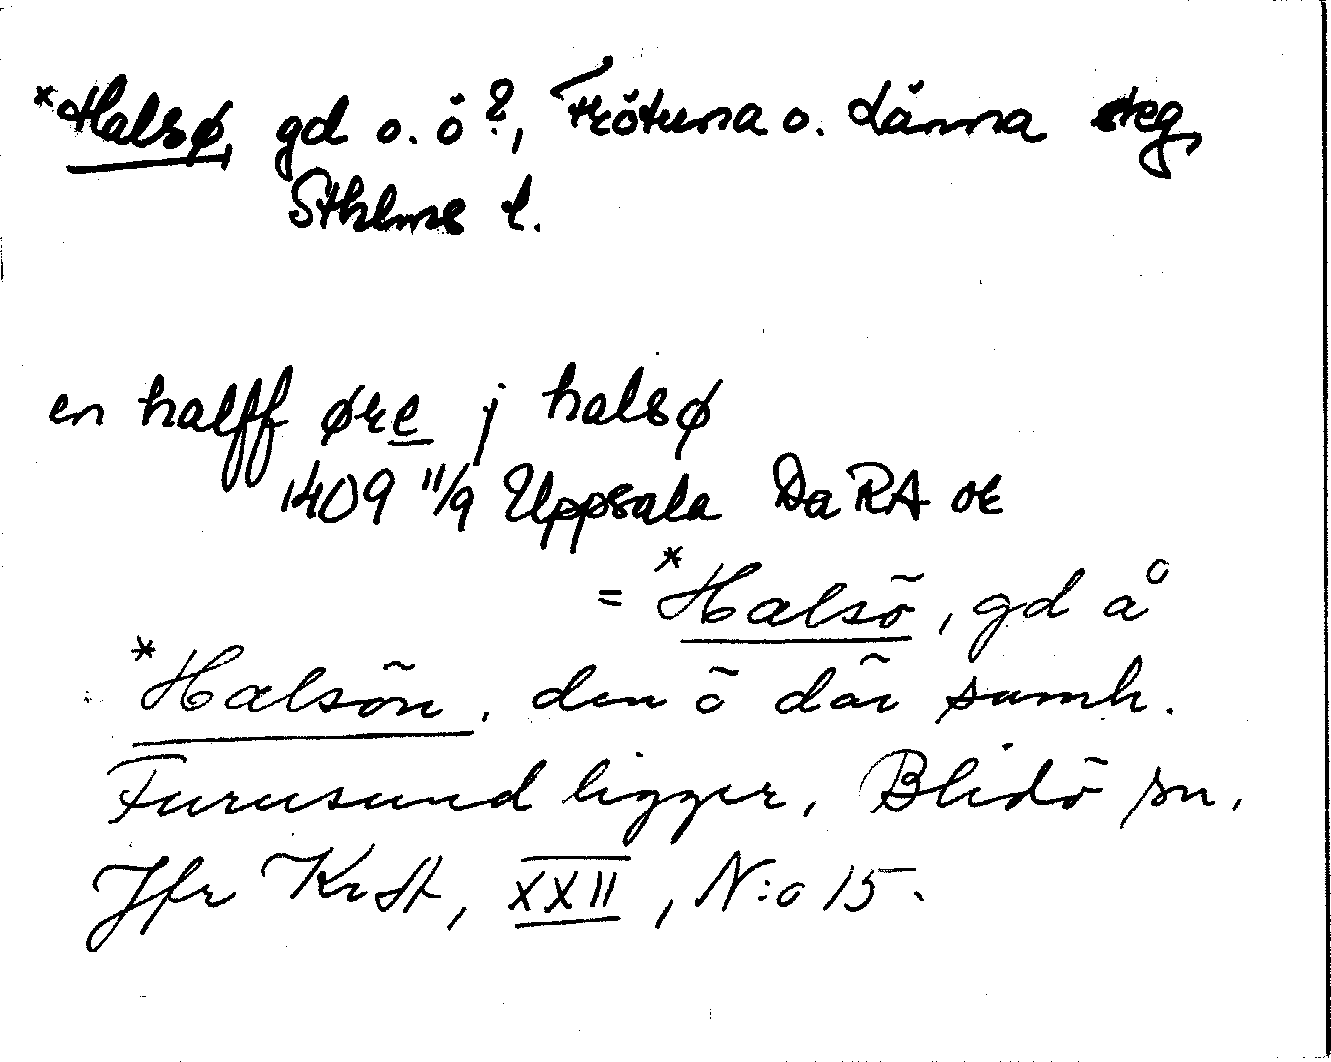 *Halsø, gd o. ö?, Frötuna o. Länna steg,
Sthlms l.
en halff øre j halsø
1409 11/9 Uppsala DaRA or
= *Halsö, gd å
*Halsön, den ö där samh.
Furusund ligger, Blidö sn.
Jfr KrSt, XXII, N:o 15.